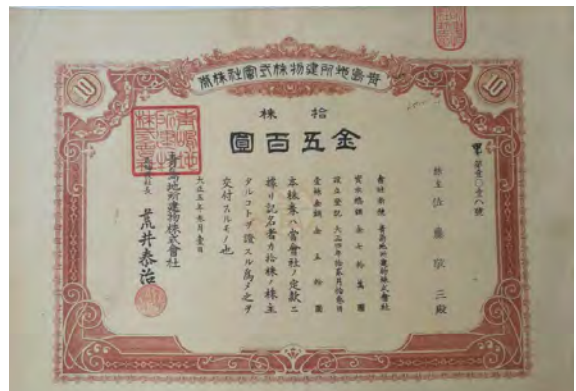 10
青島地所建物株式會社株券
10
拾株
金五百圓
甲第壹〇壹八號
株主 佐藤敬三殿
會社商號 青島地所建物株式會社
資本總額 金七拾萬圓
設立登記 大正四年拾貳月拾日
壹株金額 金五拾圓
本株券ハ當會社ノ定款ニ
據リ記名者カ拾株ノ株主
タルコトヲ證スル爲メ之ヲ
交付スルモノ也
大正五年月壹日
青島地所建物株式會社
社長 荒井泰治